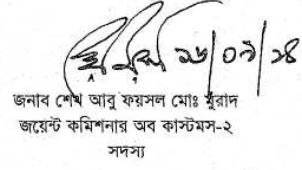 ২৬/০৯/১৪
জনাব শেখ আবু ফয়সল মোঃ মুরাদ
জয়েন্ট কমিশনার অব কাস্টমস-২
সদস্য